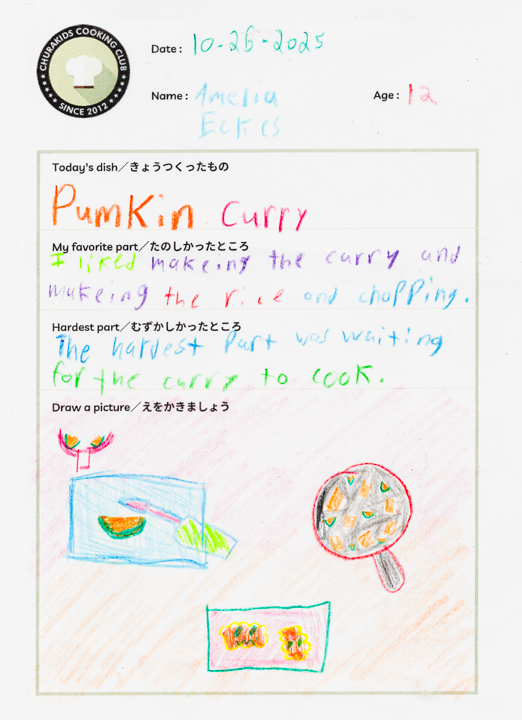 CHURAKIDS COOKING CLUB
SINCE 2012
Date: 10-26-2025
Name: Amelia
Eckes
Age: 12
Today's dish／きょうつくったもの
Pumkin Curry
My favorite part／たのしかったところ
I liked makeing the curry and
makeing the rice and chopping.
Hardest part／むずかしかったところ
The hardest part was waiting
for the curry to cook.
Draw a picture／えをかきましょう